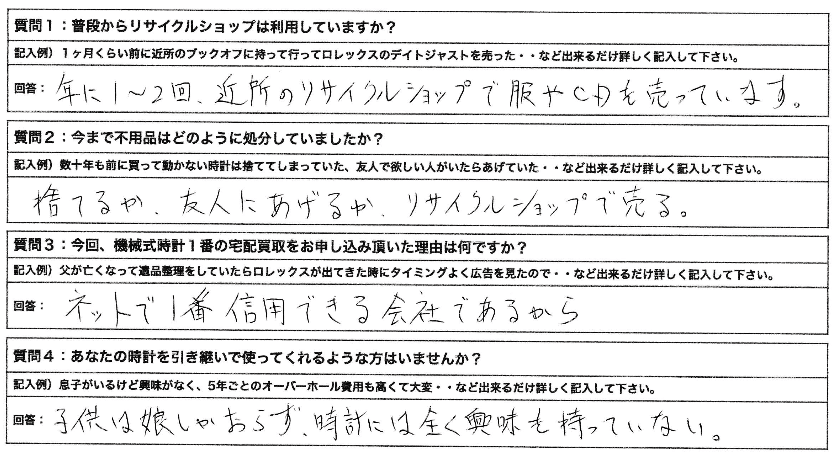 質問1：普段からリサイクルショップは利用していますか？
記入例）1ヶ月くらい前に近所のブックオフに持って行ってロレックスのデイトジャストを売った・・など出来るだけ詳しく記入して下さい。
回答：年に1～2回、近所のリサイクルショップで服やCDを売っています。
質問2：今まで不用品はどのように処分していましたか？
記入例）数十年も前に買って動かない時計は捨ててしまっていた、友人で欲しい人がいたらあげていた・・など出来るだけ詳しく記入して下さい。
捨てるか、友人にあげるか、リサイクルショップで売る。
質問3：今回、機械式時計1番の宅配買取をお申し込み頂いた理由は何ですか？
記入例）父が亡くなって遺品整理をしていたらロレックスが出てきた時にタイミングよく広告を見たので・・など出来るだけ詳しく記入して下さい。
回答：ネットで1番信用できる会社であるから
質問4：あなたの時計を引き継いで使ってくれるような方はいませんか？
記入例）息子がいるけど興味がなく、5年ごとのオーバーホール費用も高くて大変・・など出来るだけ詳しく記入して下さい。
回答：子供は娘しかおらず、時計には全く興味も持っていない。